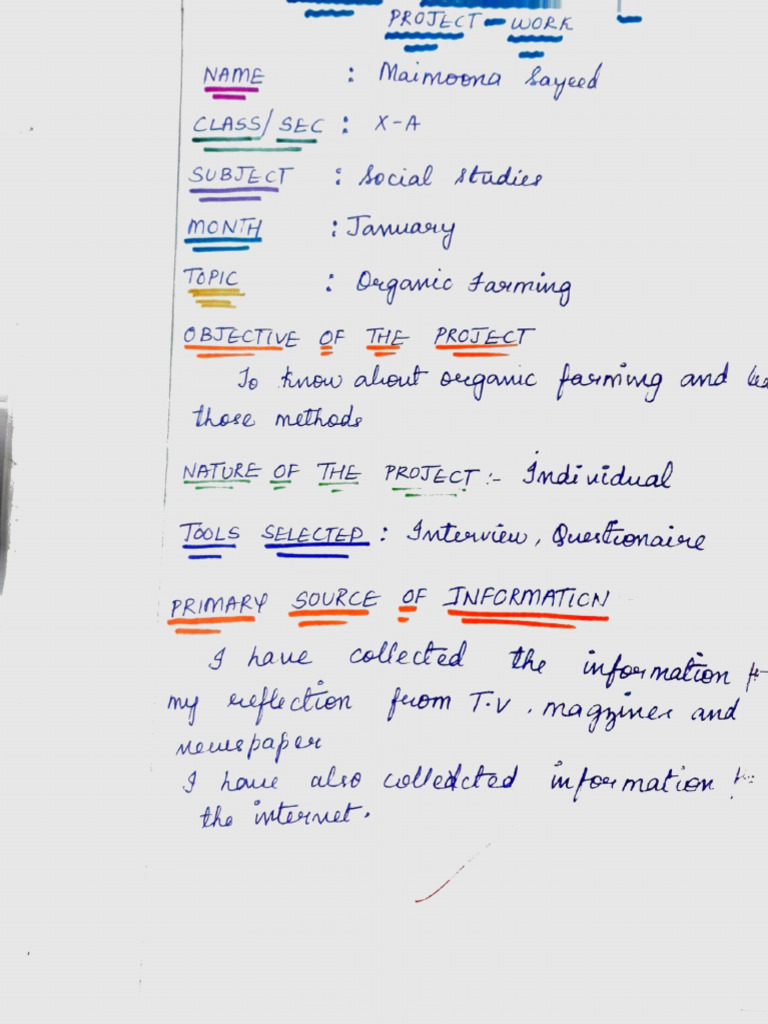 PROJECT - WORK
NAME : Maimoona Sayeed
CLASS/SEC : X-A
SUBJECT : Social studies
MONTH : January
TOPIC : Organic Farming
OBJECTIVE OF THE PROJECT
To know about organic farming and
those methods
NATURE OF THE PROJECT :- Individual
TOOLS SELECTED : Interview, Questionaire
PRIMARY SOURCE OF INFORMATION
I have collected the information
my reflection from T.V, magzines and
newspaper
I have also colledcted information
the internet.